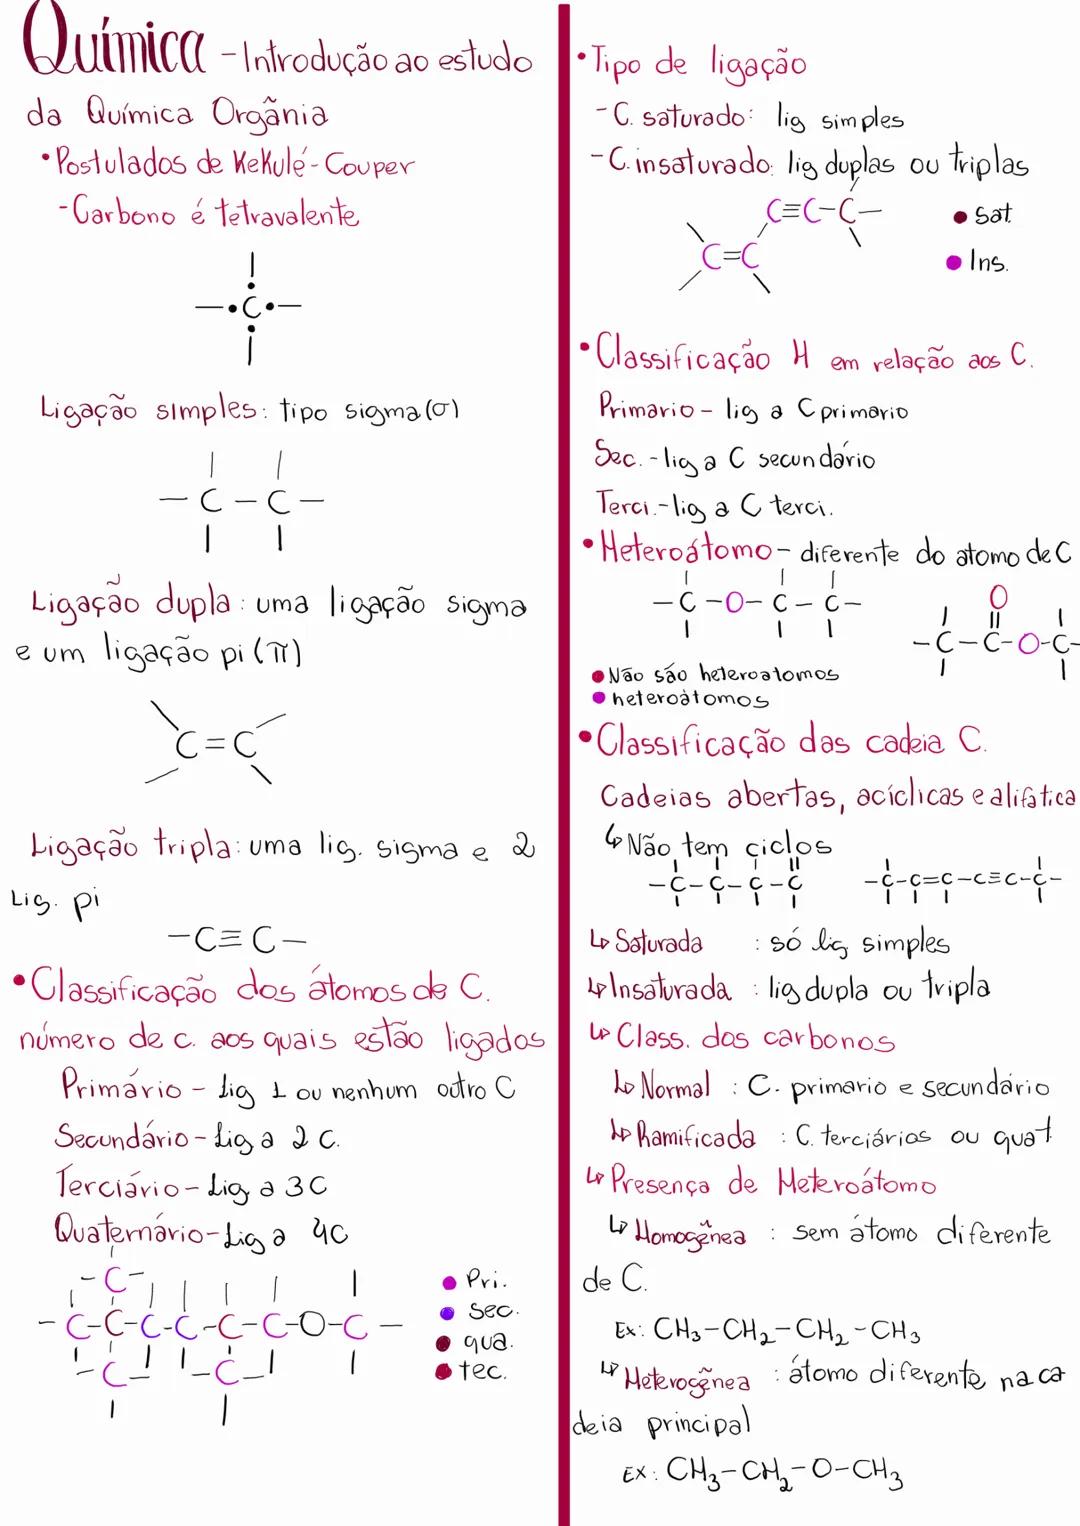 Química - Introdução ao estudo
da Química Orgânia
• Postulados de Kekulé-Couper
- Carbono é tetravalente
C
Ligação simples: tipo sigma (σ)
- C - C -
Ligação dupla: uma ligação sigma
e um ligação pi (π)
C=C
Ligação tripla: uma lig. sigma e 2
Lig. pi
-C≡C-
• Classificação dos átomos de C.
número de c. aos quais estão ligados
Primário - Lig 1 ou nenhum outro C
Secundário - Lig a 2 C.
Terciário - Lig a 3C
Quaternário - Lig a 4C
-C-
- C-C-C-C-C-C-O-C -
-C- -C-
Pri.
Sec.
qua.
tec.
• Tipo de ligação
- C. saturado: lig simples
- C. insaturado: lig duplas ou triplas
C≡C-C-
C=C
sat
Ins.
• Classificação H em relação aos C.
Primario - lig a C primario
Sec. - lig a C secundário
Terci. - lig a C terci.
• Heteroátomo - diferente do atomo de C
-C-O-C-C-
O
-C-C-O-C-
Não são heteroatomos
heteroátomos
• Classificação das cadeia C.
Cadeias abertas, acíclicas e alifatica
↳ Não tem ciclos
-C-C-C-C
-C-C=C-C≡C-C-
↳ Saturada : só lig simples
↳ Insaturada : lig dupla ou tripla
↳ Class. dos carbonos
↳ Normal : C. primario e secundário
↳ Ramificada : C. terciários ou quat
↳ Presença de Heteroátomo
↳ Homogênea : sem átomo diferente
de C.
Ex: CH₃-CH₂-CH₂-CH₃
↳ Heterogênea : átomo diferente na ca
deia principal
Ex: CH₃-CH₂-O-CH₃